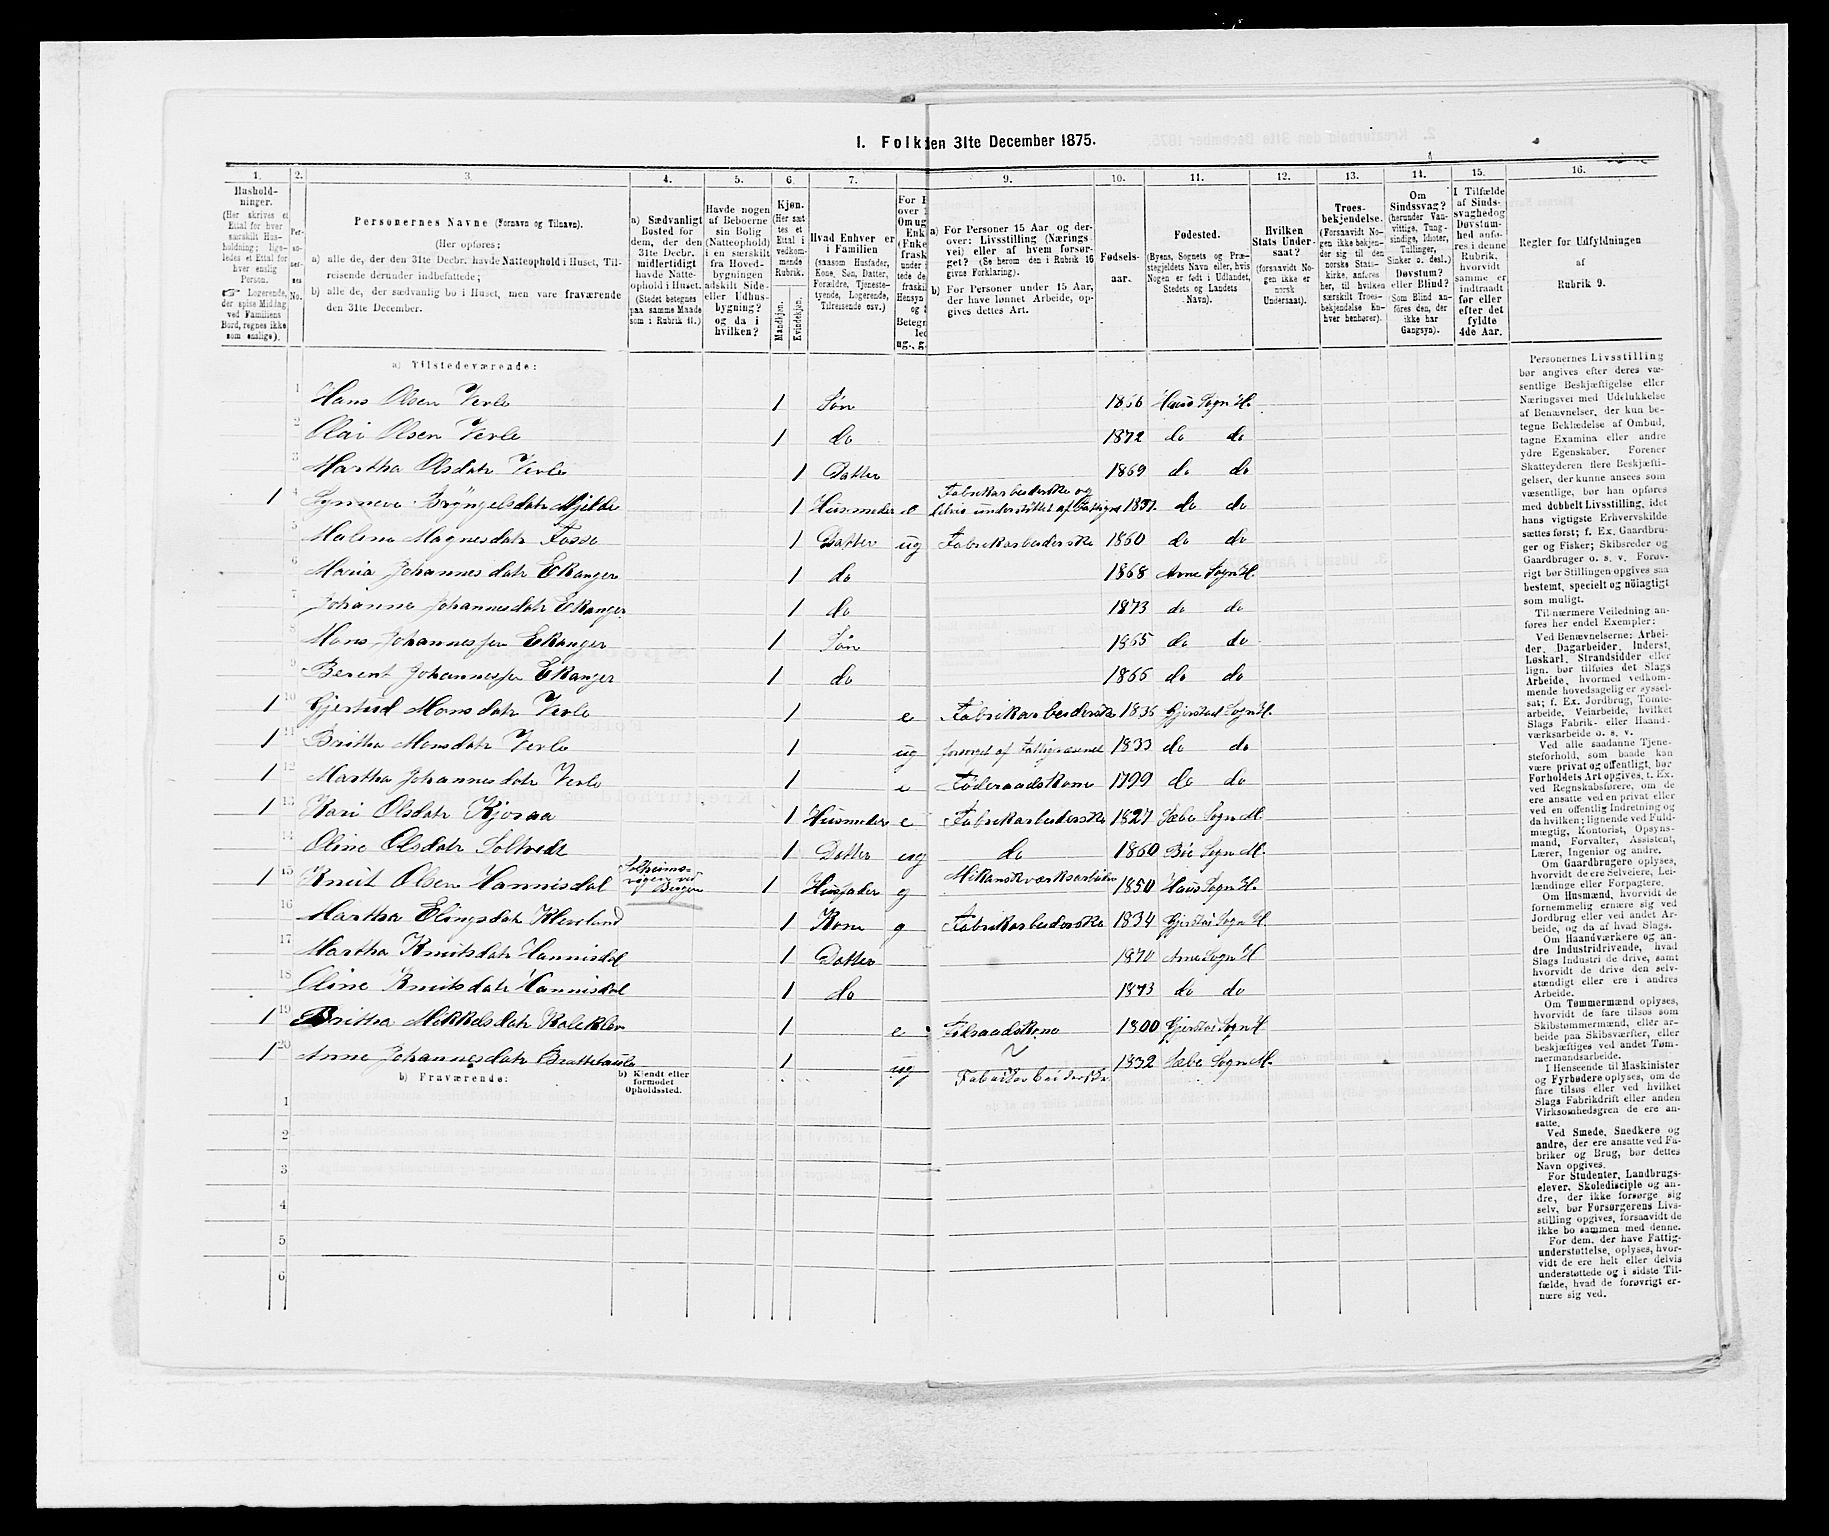 1. Folk
den 31te December 1875.
1.
2.
3.
4.
5.
6.
7.
9.
10.
11.
12.
13.
14.
15.
16.
Hushold-
ninger.
(Her skrives et
Ettal for hver
særskilt Hus-
holdning; lige-
ledes et Ettal for
hver enslig
Person.
☞ Logerende,
der spise Middag
ved Familiens
Bord, regnes ikke
som enslige).
Personernes Navne (Fornavn og Tilnavn).
(Her opføres:
a) alle de, der den 31te Decbr. havde Natteophold i Huset, Til-
reisende derunder indbefattede;
b) alle de, der sædvanlig bo i Huset, men vare fraværende
den 31te December.
a) Sædvanligt
Bosted for
dem, der den
31te Decbr.
midlertidigt
havde Natte-
ophold i Huset.
(Stedet betegnes
paa samme Maade
som i Rubrik 11.)
Havde nogen
af Beboerne
sin Bolig
(Natteophold)
i en særskilt
fra Hoved-
bygningen
adskilt Side-
eller Udhus-
bygning?
og da i
hvilken?
Kjøn.
(Her sæt-
tes et
Ettal i
vedkom-
mende
Rubrik.
Mandkjøn.
Kvindekjøn.
Hvad Enhver er
i Familien
(saasom Husfader,
Kone, Søn, Datter,
Forældre, Tjeneste-
tyende, Logerende,
Tilreisende osv.)
a) For Personer 15 Aar og der-
over: Livsstilling (Nærings-
vei) eller af hvem forsør-
get? (Se herom den i Rubrik 16
givne Forklaring).
b) For Personer under 15 Aar,
der have lønnet Arbeide, op-
gives dettes Art.
Fødsels-
aar.
Fødested.
(Byens, Sognets og Præ-
stegjeldets Navn eller, hvis
Nogen er født i Udlandet,
Stedets og Landets
Navn).
Hvilken
Stats Under-
saat?
(forsaavidt No-
gen ikke er
norsk
Undersaat).
Troes-
bekjendelse.
(Forsaavidt No-
gen ikke bekjen-
der sig til den
norske Stats-
kirke, anføres
her, til hvilken
særskilt Troes-
bekjendelse En-
hver henhører).
Om
Sindssvag?
(herunder Van-
vittige, Tung-
sindige, Idioter,
Tullinger,
Sinker o. desl.)
Døvstum?
eller Blind?
(Som Blind an-
føres den, der
ikke har
Gangsyn).
I Tilfælde
af Sinds-
svaghed og
Døvstum-
hed anfø-
res i denne
Rubrik,
hvorvidt
samme er
indtraadt
før eller
efter det
fyldte
4de Aar.
Regler for Udfyldningen
af
Rubrik 9.
a) Tilstedeværende:
1 Hans Olsen Verle 1 Søn 1866 Haus Sogn H.
2 Olai Olsen Verle 1 do 1872 do do
3 Martha Olsdatr Verle 1 Datter 1869 do do
Fabrikarbeiderske og
1 4 Synneve Brÿngelsdatr Mjelde 1 Husmoder e delvis understøttet af Fattigv. 1831. do do
5 Malena Magnesdatr Fosse 1 Datter ug Fabrikarbeiderske 1860 do do
6 Maria Johannesdatr Ekanger 1 do 1868 Arne Sogn H.
7 Johanna Johannesdatr Ekanger 1 do 1873 do do
8 Mons Johannessen Ekanger 1 Søn 1865 do do
9 Berent Johannessen Ekanger 1 do 1866 do do
1 10 Gjertrud Monsdatr Verle 1 e Fabrikarbeiderske 1836 Gjerstad Sogn H.
1 11 Britha Monsdatr Verle 1 ug forsørget af Fattigvæsenet 1833 do do
1 12 Martha Johannesdatr Verle 1 e Føderaadskone 1799 do do
1 13 Kari Olsdatr Kjoraa 1 Husmoder e Fabrikarbeiderske 1827 Sæbø Sogn M.
14 Oline Olsdatr Soltvedt 1 Datter ug do 1860 Bø Sogn M.
1 15 Knut Olsen Hannisdal Solheims-
vogen ved
Bergen 1 Husfader g Mekanskværksarbeider 1850 Haus Sogn H.
16 Martha Elingsdatr Klevland 1 Kone g Fabrikarbeiderske 1834 Gjerstad Sogn H.
17 Martha Knutsdatr Hannisdal 1 Datter 1870 Arne Sogn H
18 Oline Knutsdatr Hannisdal 1 do 1873 do do
1 19 Britha Mikkelsdatr Kaleklev 1 e Føraadskone 1800 Gjerstad Sogn H
1 20 Anne Johannesdatr Brattetaule 1 ug Fabrikarbeiderske 1832 Sæbø Sogn M.
b) Fraværende:
b) Kjendt eller
formodet
Opholdssted.
1
2
3
4
5
6
Personernes Livsstilling
bør angives efter deres væ-
sentlige Beskjæftigelse eller
Næringsvei med Udelukkelse
af Benævnelser, der kun be-
tegne Beklædelse af Ombud,
tagne Examina eller andre
ydre Egenskaber. Forener
Skatteyderen flere Beskjæfti-
gelser, der kunne ansees som
væsentlige, bør han opføres
med dobbelt Livsstilling, idet
hans vigtigste Erhvervskilde
sættes først; f. Ex. Gaardbru-
ger og Fisker; Skibsreder og
Gaardbruger o. s. v. Forøv-
rigt bør Stillingen opgives saa
bestemt, specielt og nøiagtig
som muligt.
Til nærmere Veiledning an-
føres her endel Exempler:
Ved Benævnelserne: Arbei-
der, Dagarbeider, Inderst,
Løskarl, Strandsidder eller
lign. bør tilføies det Slags
Arbeide, hvormed vedkom-
mende hovedsagelig er syssel-
sat; f. Ex. Jordbrug, Tomte-
arbeide, Veiarbeide, hvilket
Slags Fabrik- eller Haand-
værksarbeide o. s. v.
Ved alle saadanne Tjene-
steforhold, som baade kan
være privat og offentligt, bør
Forholdets Art opgives, f. Ex.
ved Regnskabsførere, om de
ere ansatte ved en privat eller
ved en offentlig Indretning og
da hvilken; lignende ved Fuld-
mægtig, Kontorist, Opsyns-
mand, Forvalter, Assistent,
Lærer, Ingeniør og andre.
Om Gaardbrugere oplyses,
hvorvidt de ere Selveiere, Lei-
lændinge eller Forpagtere.
Om Husmænd, hvorvidt de
fornemmelig ernære sig ved
Jordbrug eller ved andet Ar-
beide, og da af hvad Slags.
Om Haandværkere og an-
dre Industridrivende, hvad
Slags Industri de drive, samt
hvorvidt de drive den selv-
stændigt eller ere i andres
Arbeide.
Om Tømmermænd oplyses,
hvorvidt de fare tilsøs som
Skibstømmermænd, eller ar-
beide paa Skibsværfter, eller
beskjæftiges ved andet Tøm-
mermandsarbeide.
I Henseende til Maskinister
og Fyrbødere oplyses, om de
fare tilsøs eller ved hvilket
Slags Fabrikdrift eller anden
Virksomhedsgren de ere an-
satte.
Ved Smede, Snedkere og
andre, der ere ansatte ved Fa-
briker og Brug, bør dettes
Navn opgives.
For Studenter, Landbrugs-
elever, Skoledisciple og an-
dre, der ikke forsørge sig
selv, bør Forsørgerens Livs-
stilling opgives, forsaavidt de
ikke bo sammen med denne.
For dem, der have Fattig-
understøttelse, oplyses, hvor-
vidt de ere helt eller delvis
understøttede og i sidste Til-
fælde, hvad de forøvrigt er-
nære sig ved.